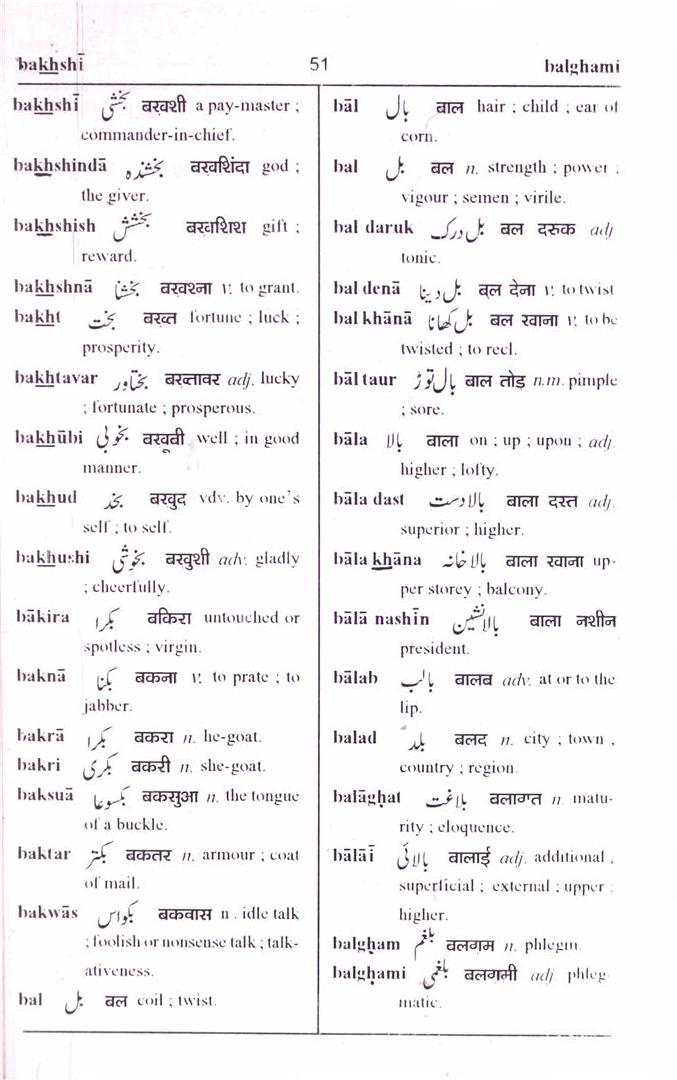 bakhshī 51 balghami
bakhshī بخشی बख़शी a pay-master ;
commander-in-chief.
bakhshindā بخشندہ बख़शिंदा god ;
the giver.
bakhshish بخشش बख़शिश gift ;
reward.
bakhshnā بخشنا बख़श्ना v. to grant.
bakht بخت बख़्त fortune ; luck ;
prosperity.
bakhtavar بختاور बख़्तावर adj. lucky
; fortunate ; prosperous.
bakhūbi بخوبی बख़ूबी well ; in good
manner.
bakhud بخد बख़ुद vdv. by one's
self ; to self.
bakhushi بخوشی बख़ुशी adv. gladly
; cheerfully.
bākira بکرا बकिरा untouched or
spotless ; virgin.
baknā بکنا बकना v. to prate ; to
jabber.
bakrā بکرا बकरा n. he-goat.
bakri بکری बकरी n. she-goat.
baksuā بکسوعا बकसुआ n. the tongue
of a buckle.
baktar بکتر बकतर n. armour ; coat
of mail.
bakwās بکواس बकवास n. idle talk
; foolish or nonsense talk ; talk-
ativeness.
bal بل बल coil ; twist.
bāl بال बाल hair ; child ; ear of
corn.
bal بل बल n. strength ; power ;
vigour ; semen ; virile.
bal daruk بل درک बल दरुक adj
tonic.
bal denā بل دینا बल देना v. to twist
bal khānā بل کھانا बल खाना v. to be
twisted ; to recl.
bāl taur بال توڑ बाल तोड़ n.m. pimple
; sore.
bāla بالا बाला on ; up ; upon ; adj.
higher ; lofty.
bāla dast بالا دست बाला दस्त adj.
superior ; higher.
bāla khāna بالا خانہ बाला ख़ाना up-
per storey ; balcony.
bālā nashīn بالانشین बाला नशीन
president.
bālab بالب बालब adv. at or to the
lip.
balad بلد बलद n. city ; town ;
country ; region.
balāghat بلاغت बलाग़त n. matu-
rity ; eloquence.
bālāī بالائی बालाई adj. additional ,
superficial ; external ; upper ;
higher.
balgham بلغم बलग़म n. phlegm.
balghami بلغمی बलग़मी adj. phleg
matic.